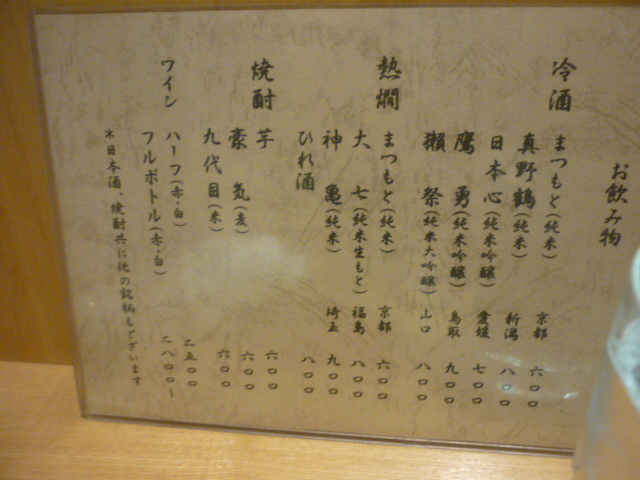 お飲み物
冷酒 まつもと(純米) 京都 六〇〇
真野鶴(純米) 新潟 八〇〇
日本心(純米吟醸) 愛媛 七〇〇
鷹勇(純米吟醸) 鳥取 九〇〇
獺祭(純米大吟醸) 山口 八〇〇
熱燗 まつもと(純米) 京都 六〇〇
大七(純米生もと) 福島 八〇〇
神亀(純米) 埼玉 九〇〇
ひれ酒 八〇〇
焼酎 芋 六〇〇
豪気(麦) 六〇〇
九代目(米) 六〇〇
ワイン ハーフ(赤・白) 二五〇〇
フルボトル(赤・白) 二八〇〇～
※日本酒、焼酎共に他の銘柄もございます